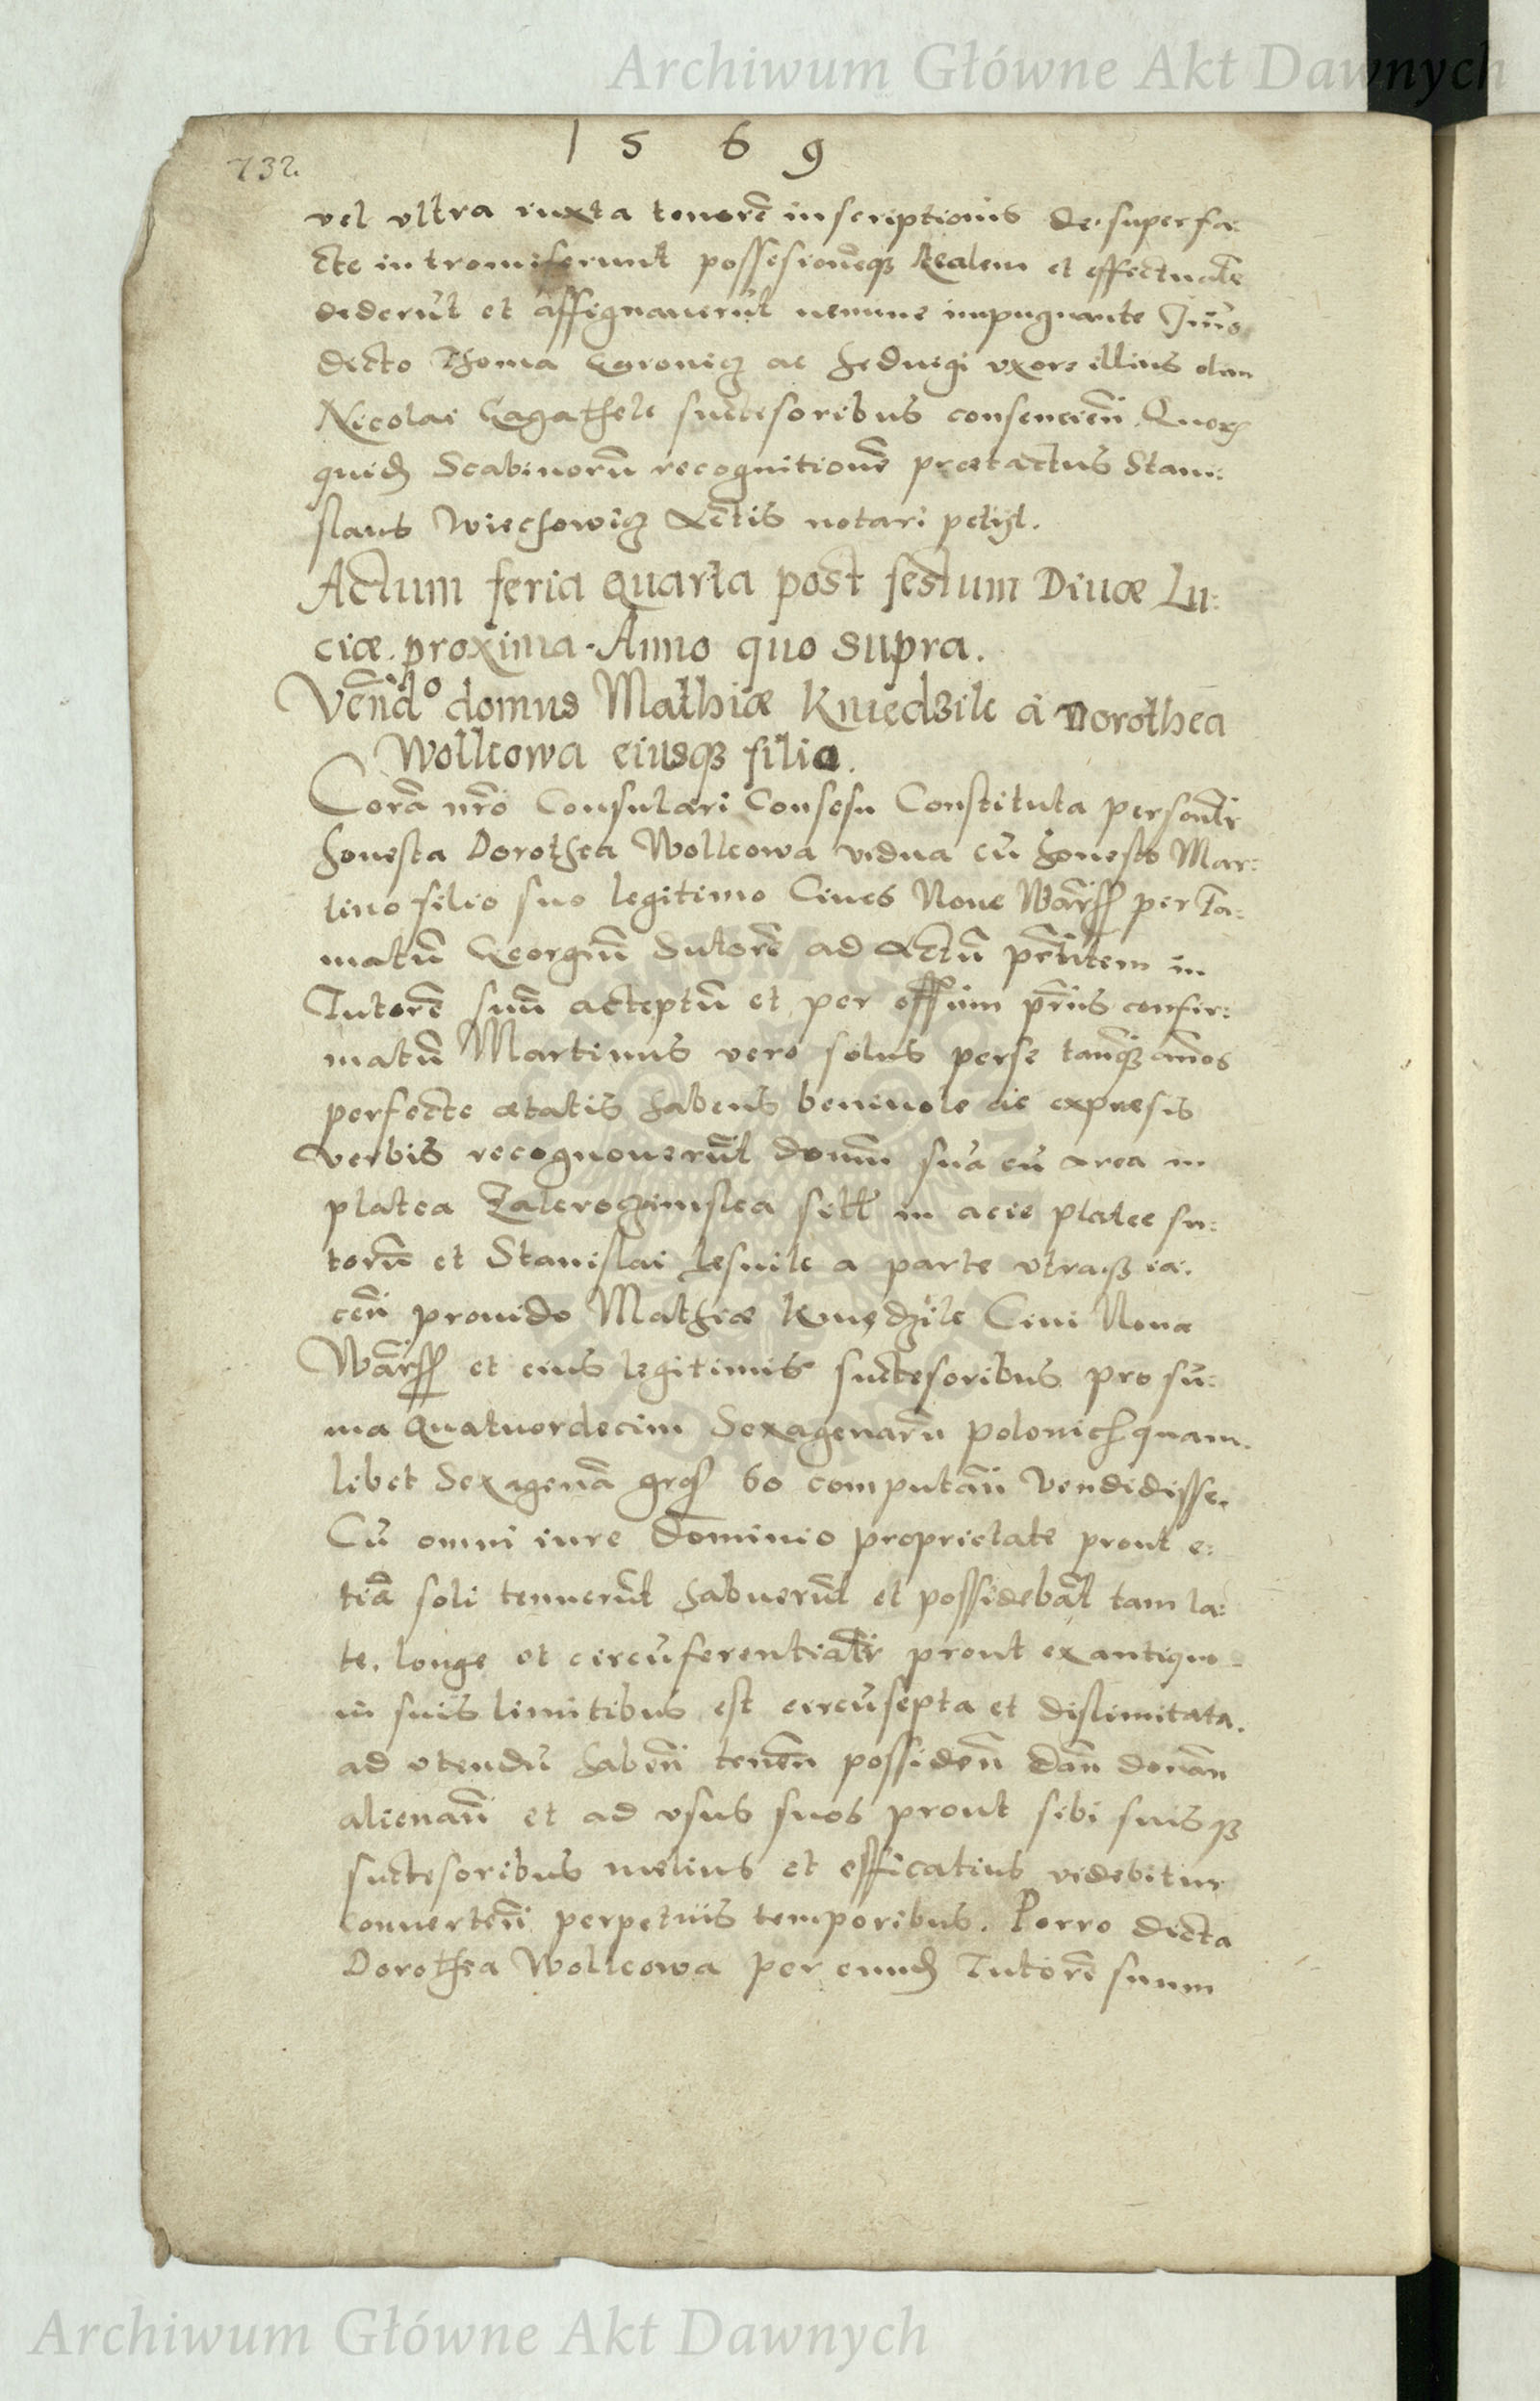 Archiwum Główne Akt Dawnych
1 5 6 9
732.
vel vltra iuxta tenorē inscriptionis de super fa:
cte intromiserunt possesionēq3 Realem et effectualē
dederūt et assignauerūt nemine impugnante
dicto Thoma ac Heduigi vxore illius olim
Nicolai succesoribus consencien̄. Quorꝝ
quid Scabinorū recognitionē praetactus Stani:
slaus Wiechowicz Actis notari petijt.
Actum feria quarta post festum Diuæ Lu:
ciæ proxima. Anno quo supra.
Vēnd⁰ domus Mathiæ Kniedzile à Dorothea
Wollcowa eiusq3 filio.
Corā nr̄o Consulari Consesu Constituta personlr̄
honesta Dorothea Wollcowa vidua cū honesto Mar:
tino filio suo legitimo Ciues Noue War̄ss per fa:
matū Georgiū Sutorē ad Actū pr̄ntem in
Tutorē suū acceptū et per offium pr̄ius confir:
matū Martinus vero solus per se tanq3 annos
perfecte ætatis habens beniuole ac expresis
verbis recognouerūt domū suā cū area in
platea Zakroczimska sitt in acie platee su:
torū et Stanislai Lesnik a parte vtraq3 ia:
cēn prouido Mathiæ Kniedzile Ciui Nouæ
War̄ss et eius legitimis succesoribus pro su:
ma quatuordecim Sexagenarū polonich quam:
libet Sexagenā gros 60 computān Vendidisse.
Cū omni iure dominio proprietate prout e:
tiā soli tenuerūt habuerūt et possidebāt tam la:
te, longe et circūferentialr̄ prout ex antiquo
in suis limitibus est circūsepta et dislimitata.
ad vtendū habēn tenēn possidēn dān donān
alienān et ad vsus suos prout sibi suisq3
succesoribus melius et efficatius videbitur
conuertēn perpetuis temporibus. Porro dicta
Dorothea Wollcowa per eund Tutorē suum
Archiwum Główne Akt Dawnych